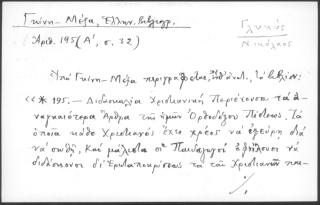 Γκίνη - Μέξα, Ἑλλην. βιβλιογρ.
Ἀριθ. 195 (Α', σ. 32)
Γλυκύς
Νικόλαος
Ὑπὸ Γκίνη - Μέξα περιγράφεται, τὸ βιβλίον:
«* 195. - Διδασκαλία Χριστιανικὴ Περιέχουσα τὰ ἀ-
ναγκαιότερα Ἄρθρα τῆς ἡμῶν Ὀρθοδόξου Πίστεως. Τὰ
ὁποῖα κάθε Χριστιανὸς ἔχει χρέος νὰ ἠξεύρῃ διὰ
νὰ σωθῇ, Καὶ μάλιστα οἱ Παιδαγωγοὶ ὀφείλουσι νὰ
διδάσκουσι δι' Ἐρωταποκρίσεως τὰ τῶν Χριστιανῶν παι-